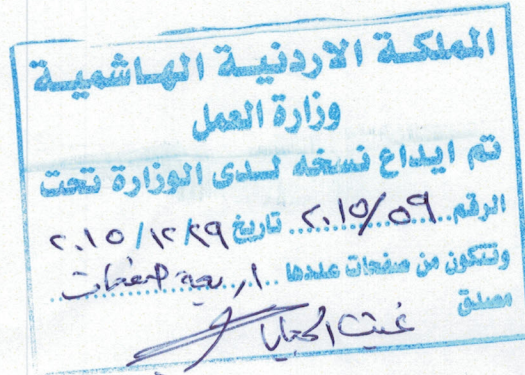 المملكة الاردنية الهاشمية
وزارة العمل
تم ايداع نسخه لدى الوزارة تحت
الرقم ٢٠١٥/٥٩ تاريخ ٢٠١٥/١٢/٢٩
وتتكون من صفحات عددها اربعة صفحات
مصدق